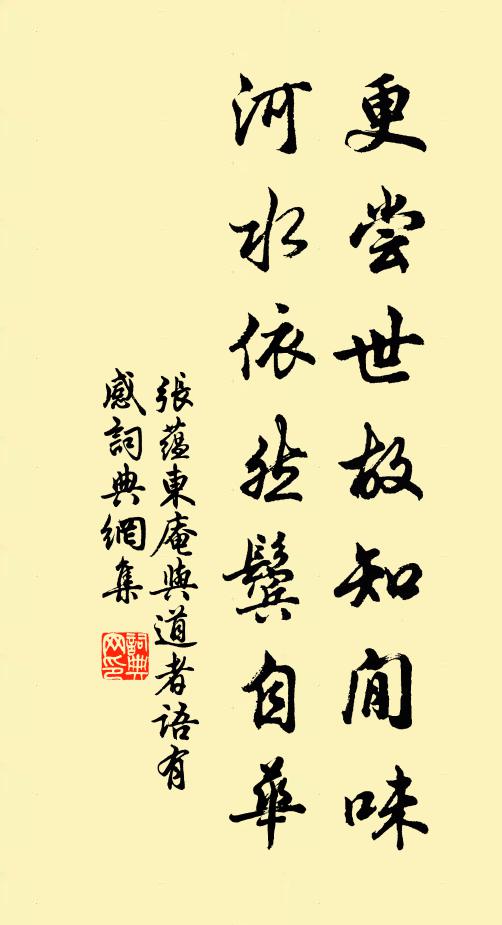 更嘗世故知閒味
河水依然鬢自華
張蘊東庵與道者語有
感詞典網集
詞典
网印